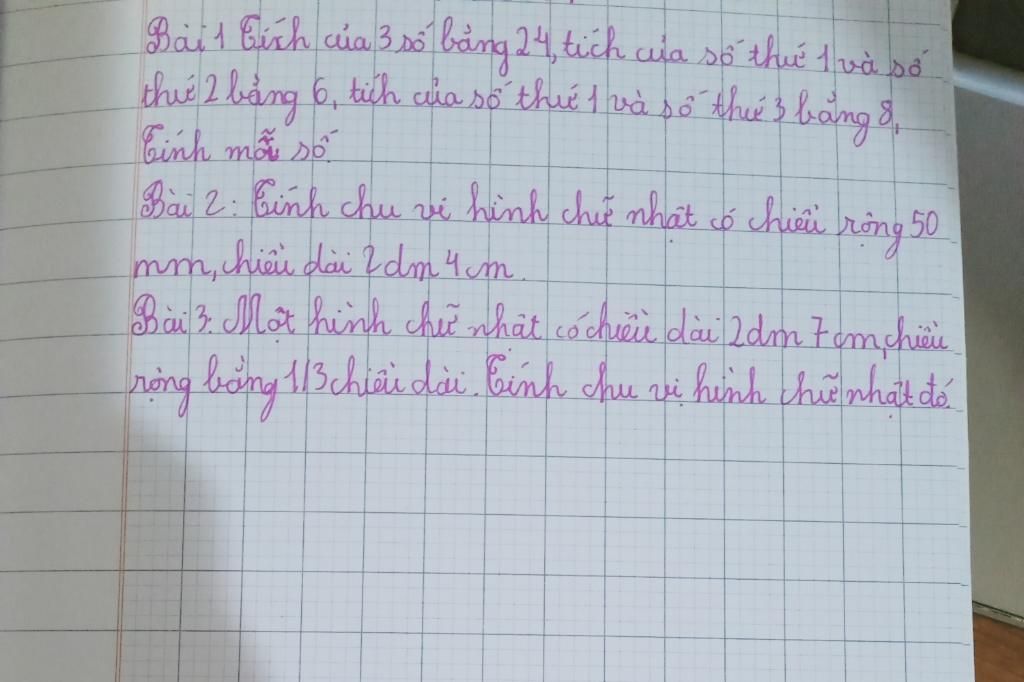 Bài 1 Tích của 3 số bằng 24, tích của số thứ 1 và số
thứ 2 bằng 6, tích của số thứ 1 và số thứ 3 bằng 8,
Tính mỗi số
Bài 2: Tính chu vi hình chữ nhật có chiều rộng 50
mm, chiều dài 2 dm 4 cm.
Bài 3. Một hình chữ nhật có chiều dài 2 dm 7 cm, chiều
rộng bằng 1/3 chiều dài. Tính chu vi hình chữ nhật đó.